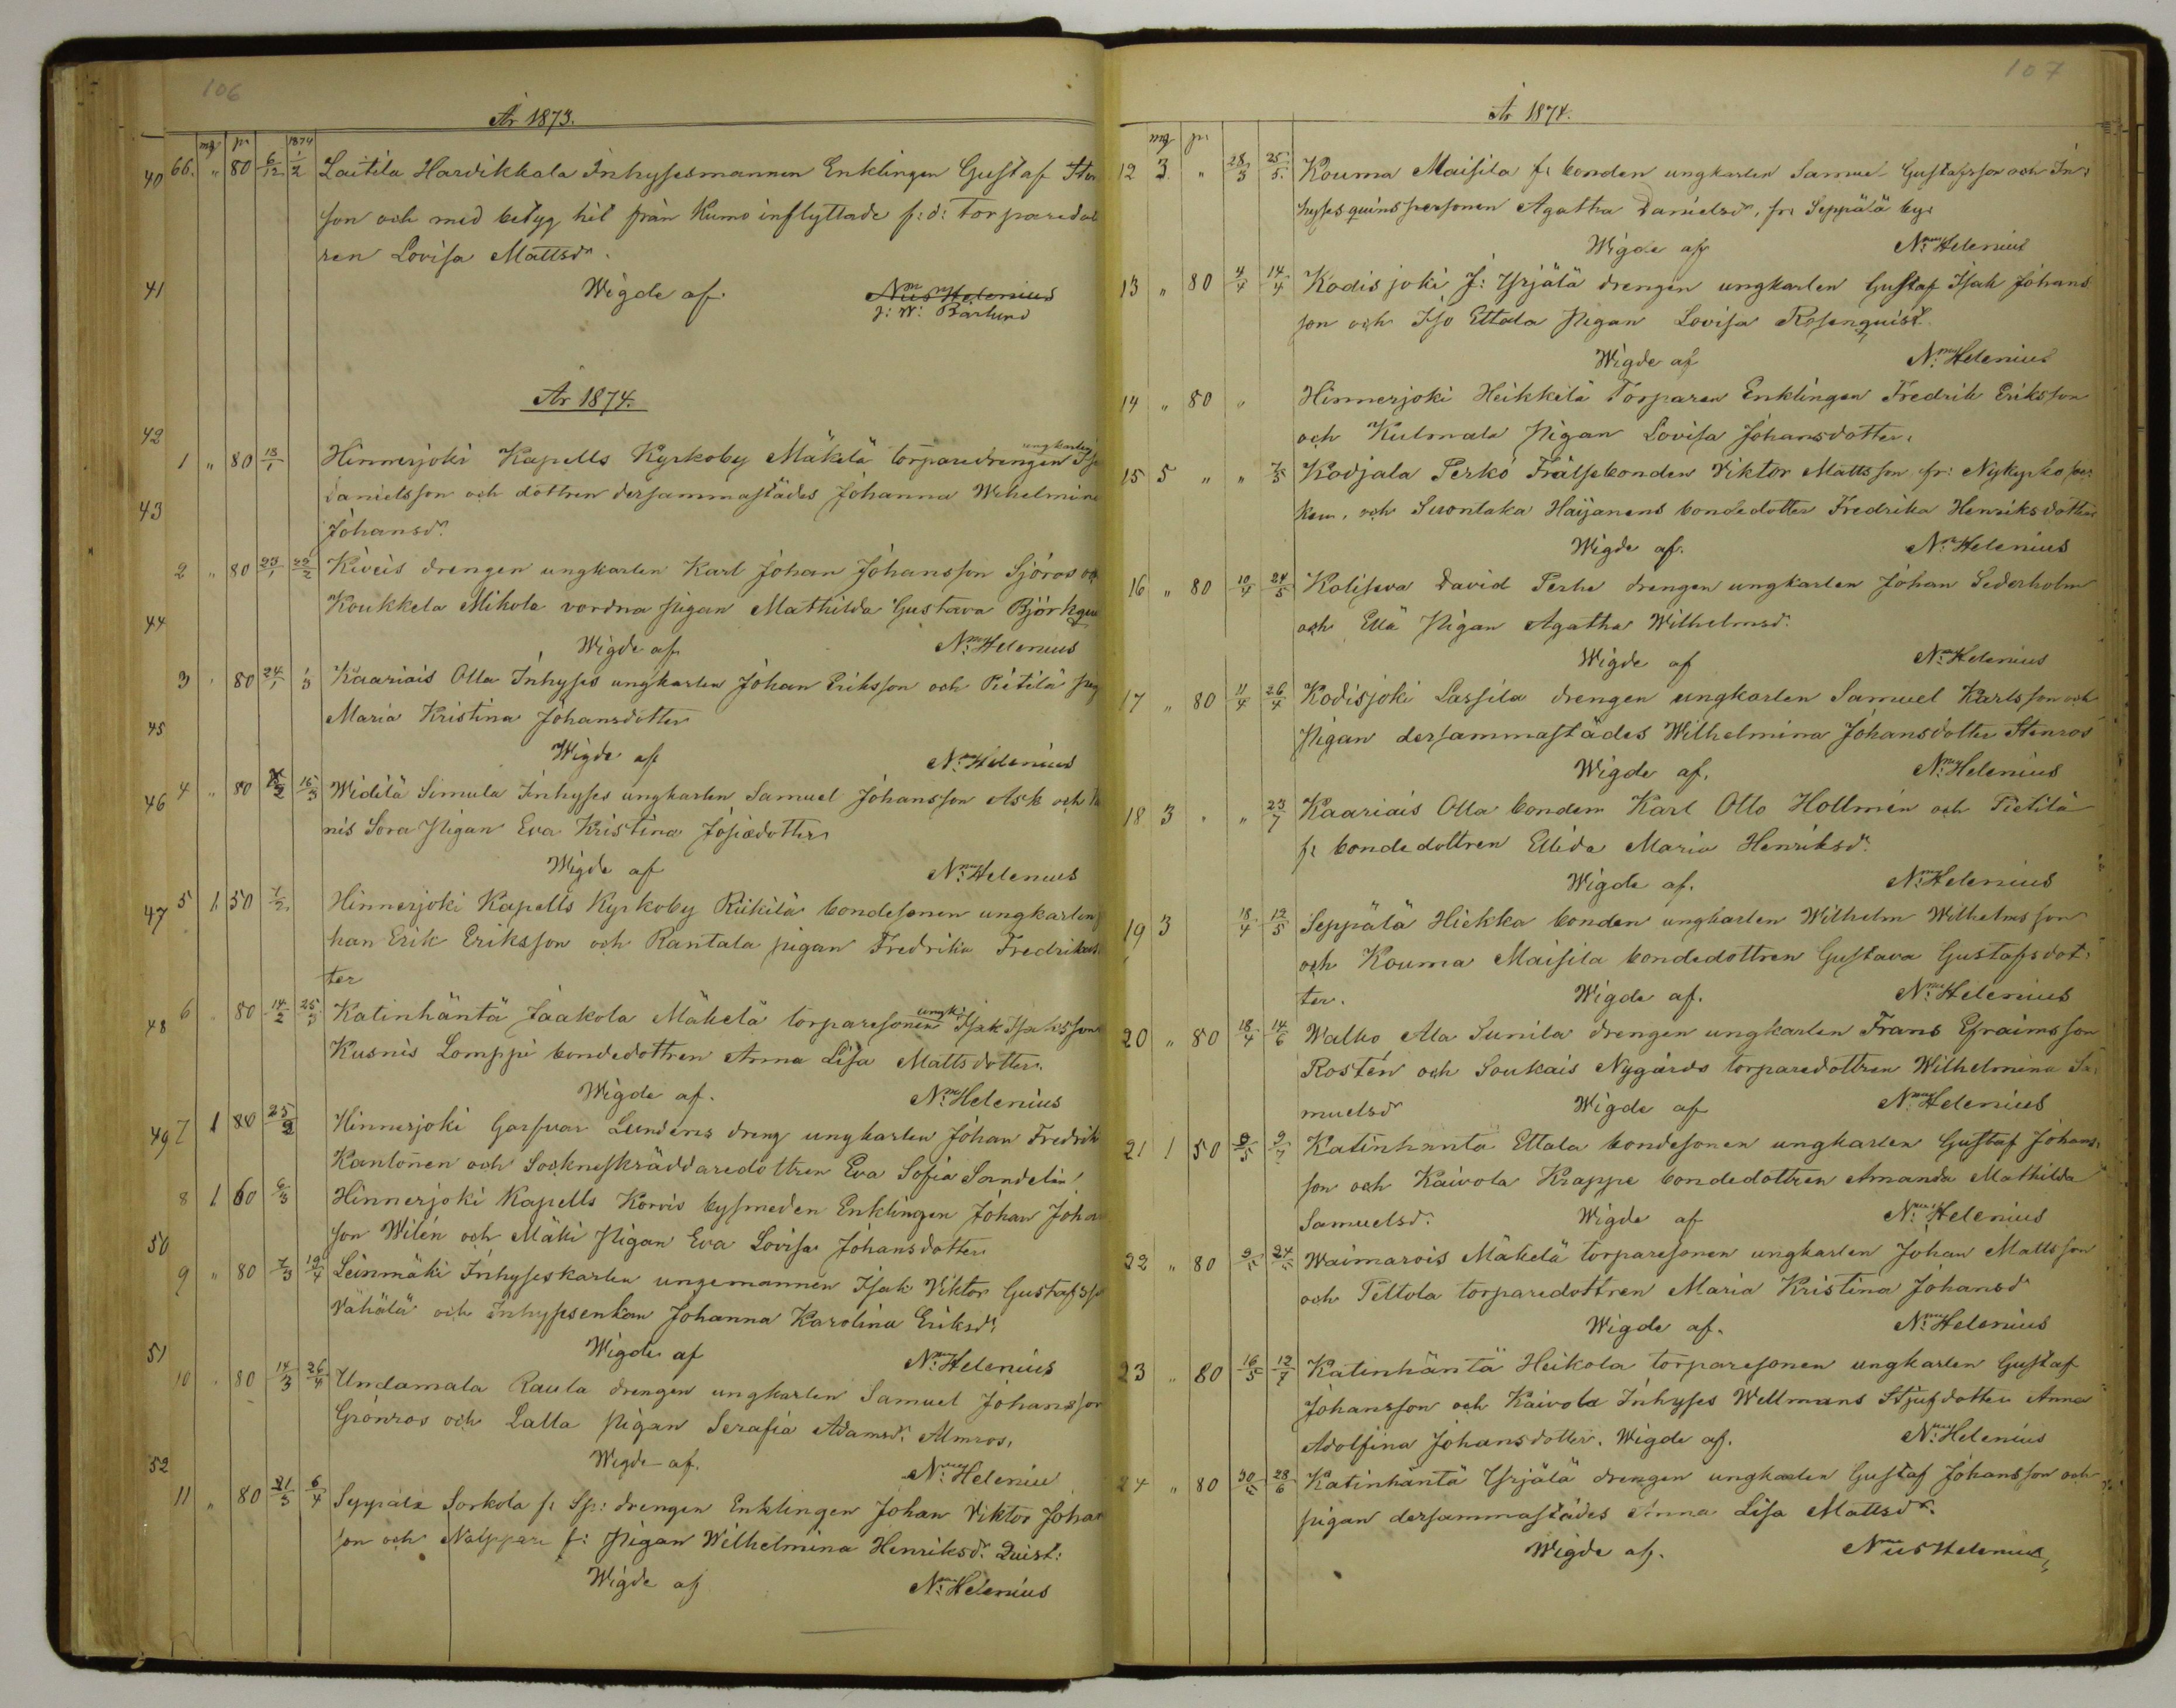 106
År 1873.
mg pi 1874
40 66. " 80 6/12 1/2 Laitila Hardikkala Inhysesmannen Enklingen Gustaf Sten
son och med betyg hit från Kumo inflyttade f:d: Torparedot
ren Lovisa Mattsdr.
41 Wigde af. Nus Helenius
J: W: Bärlund
År 1874.
42
ungkarlen
1 " 80 18/1 Hinnerjoki Kapells Kyrkoby Mäkelä torparedrengen
Danielsson och dottren dersammastädes Johanna Wilhelmina
43
Johansdr.
2 " 80 23/1 22/2 Kiveis drengen ungkarlen Karl Johan Johansson Sjöros och
Koukkela Mikola vordna pigan Mathilda Gustava Björkqu
44
Wigde af N: Helenius
3 " 80 24/1 1/3 Kaariais Olla Inhyses ungkarlen Johan Eriksson och Pietilä pig
Maria Kristina Johansdotter
45
Wigde af N: Helenius
46 4 " 80 /2 15/3 Widilä Simula Inhyses ungkarlen Samuel Johansson Ask och
nis Sora Pigan Eva Kristina Josiædotter
Wigde af N: Helenius
47 5 1 50 7/2 Hinnerjoki Kapells Kyrkoby Riikilä bondesonen ungkarlen
han Erik Eriksson och Rantala pigan Fredrika Fredriks
ter
ungk:
48 6 80 14/2 25/3 Katinhäntä Jaakola Mäkelä torparesonen Isak Isaksson
Kusnis Lomppi bondedottren Anna Lisa Mattsdotter.
Wigde af. N: Helenius
49 7 1 80 25/2 Hinnerjoki Gasfvar Lundens dreng ungkarlen Johan Fredrik
Kantonen och Sockneskräddaredottren Eva Sofia Sandelin
8 1 60 6/3 Hinnerjoki Kapells Korvis bysmeden Enklingen Johan Johan
50 son Wilén och Mäki Pigan Eva Lovisa Johansdotter
9 " 80 7/3 19/4 Leinmäki Inhyseskarlen ungemannen Isak Viktor Gustafsso
Vähälä och Inhysesenkan Johanna Karolina Eriksdr.
51
Wigde af N: Helenius
10 " 80 14/3 26/4 Undamala Raula drengen ungkarlen Samuel Johansson
Grönros och Lalla pigan Serafia Adamsdr. Almros.
52
Wigde af. N: Helenius
11 " 80 21/3 6/4 Seppälä Sorkola f: Sp: drengen Enklingen Johan Viktor Johan
son och Nalppari f: Pigan Wilhelmina Henriksdr. Quist:
Wigde af N: Helenius
107
År 1874.
mg pi
12 3 " 28/3 25/5 Kouma Maisila f: bonden ungkarlen Samuel Gustafsson och In:
hysesquinspersonen Agatha Danielsdr. fr: Seppälä by:
Wigde af N: Helenius
13 " 80 4/4 14/4 Kodisjoki J: Yrjälä drengen ungkarlen Gustaf Isak Johans
son och Iso Ettala Pigan Lovisa Rosenquist.
Wigde af N: Helenius
14 " 80 " Hinnerjoki Heikkilä Torparen Enklingen Fredrik Eriksson
och Kulmala Pigan Lovisa Johansdotter.
15 5 " " 7/5 Kodjala Perko Frälsebonden Viktor Mattsson fr: Nykyrko soc
ken, och Suontaka Haijanens bondedotter Fredrika Henriksdotter
Wigde af. N: Helenius
16 " 80 10/4 24/5 Koliseva David Perhe drengen ungkarlen Johan Sederholm
och Ellä Pigan Agatha Wilhelmsd.
Wigde af N: Helenius
17 " 80 11/4 26/4 Kodisjoki Lassila drengen ungkarlen Samuel Karlsson och
Pigan dersammastädes Wilhelmina Johansdotter Stenros
Wigde af. N: Helenius
18 3 " " 23/7 Kaariais Olla bonden Karl Otto Hollmén och Pietilä
f: bondedottren Elida Maria Henriksdr.
Wigde af. N: Helenius
19 3 18/4 12/5 Seppälä Hiekka bonden ungkarlen Wilhelm Wilhelmsson
och Kouma Maisila bondedottren Gustava Gustafsdot:
ter. Wigde af. N: Helenius
20 " 80 18/4 14/6 Walko Ala Sunila drengen ungkarlen Frans Efraimsson
Rostén och Soukais Nygårds torparedottren Wilhelmina Sa:
muelsdr Wigde af N: Helenius
21 1 50 /5 9/7 Katinhnntä Ettala bondesonen ungkarlen Gustaf Johans:
son och Kaivola Krappe bondedottren Amanda Mathilda
Samuelsdr. Wigde af N: Helenius
22 " 80 9/5 24/5 Waimarois Mäkelä torparesonen ungkarlen Johan Mattsson
och Peltola torparedottren Maria Kristina Johansd
Wigde af. N: Helenius
23 " 80 16/5 12/7 Katinhäntä Heikola torparesonen ungkarlen Gustaf
Johansson och Kaivola Inhyses Wellmans Stjufdotter Anna
Adolfina Johansdotter. Wigde af. N: Helenius
24 " 80 30/5 28/6 Katinhäntä Yrjälä drengen ungkarlen Gustaf Johansson och
pigan dersammastädes Anna Lisa Mattsdr.
Wigde af. Nus Helenius